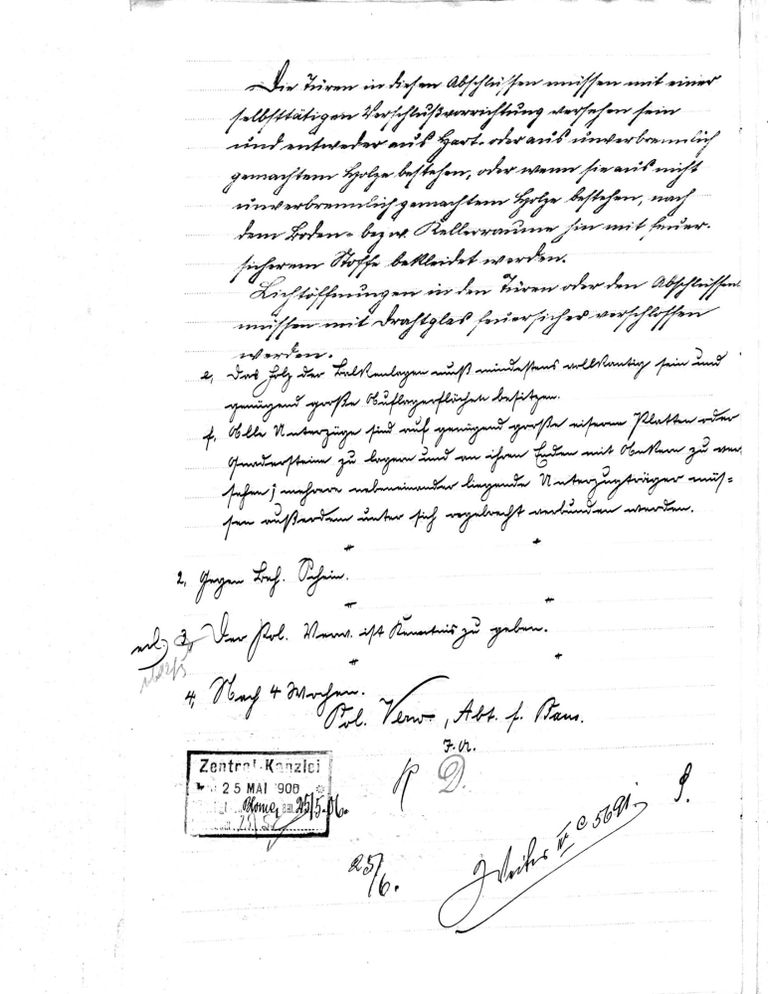 Die Türen in diesen Abschlüssen müssen mit einer
selbsttätigen Verschlußvorrichtung versehen sein
und entweder aus Hart- oder aus unverbrennlich
gemachtem Holze bestehen, oder wenn sie aus nicht
unverbrennlich gemachtem Holze bestehen, nach
dem Boden- bezw. Kellerraume hin mit feuer-
sicherem Stoffe bekleidet werden.
Lichtöffnungen in den Türen oder den Abschlüssen
müssen mit Drahtglas feuersicher verschlossen
werden.
e, Das Holz der Balkenlagen muß mindestens vollkantig sein und
genügend große Auflagerflächen besitzen.
f, Alle Unterzüge sind auf genügend große eiserne Platten oder
Quadersteine zu lagern und an ihren Enden mit Ankern zu ver-
sehen; mehrere nebeneinander liegende Unterzugträger müs-
sen außerdem unter sich regelrecht verbunden werden.
2, Gegen Beh. Schein.
erl.) 3, Der Pol. Verw. ist Kenntnis zu geben.
4, Nach 4 Wochen.
Pol. Verw., Abt. f. Bau.
J.A.
Zentral-Kanzlei
25 MAI 1906
am 25/5.06.
25/6.
Weiter IV C 5691.